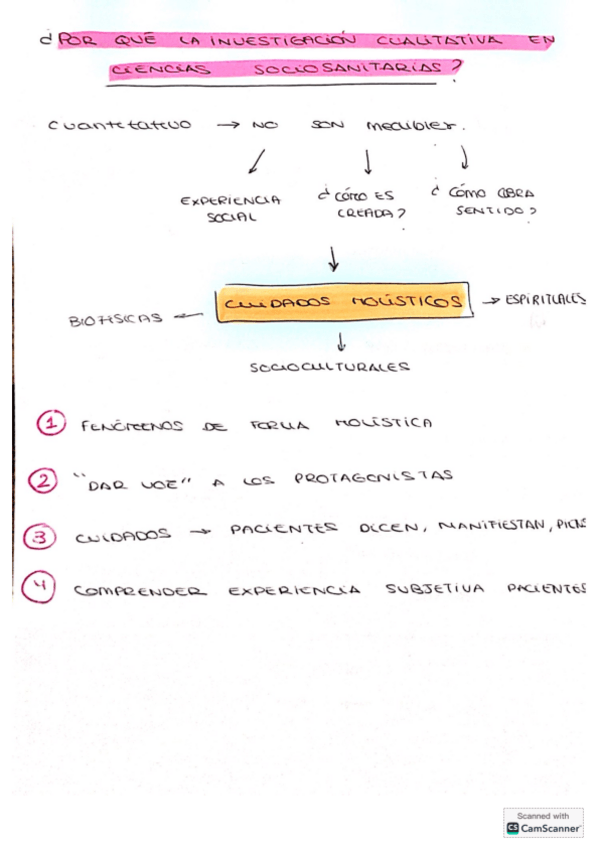 ¿POR QUÉ LA INVESTIGACIÓN CUALITATIVA EN
CIENCIAS SOCIOSANITARIAS?
Cuantitativo → NO SON medibles.
EXPERIENCIA SOCIAL
¿CÓMO ES CREADA?
¿CÓMO COBRA SENTIDO?
CUIDADOS HOLÍSTICOS
→ ESPIRITUALES
BIOFÍSICAS ←
SOCIOCULTURALES
1 FENÓMENOS DE FORMA HOLÍSTICA
2 "DAR VOZ" A LOS PROTAGONISTAS
3 CUIDADOS → PACIENTES DICEN, MANIFIESTAN,
4 COMPRENDER EXPERIENCIA SUBJETIVA PACIENTES
Scanned with
CS CamScanner